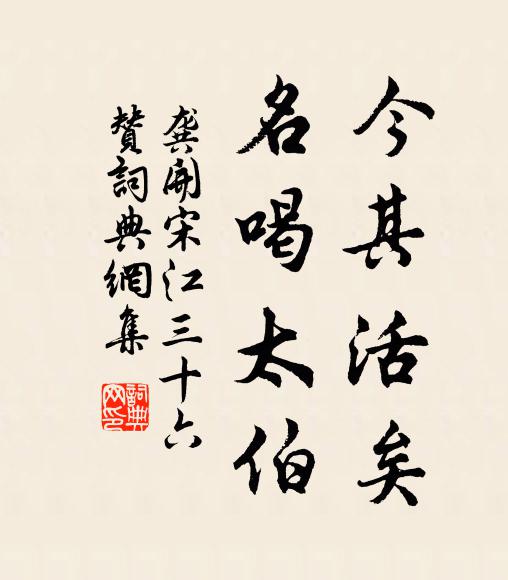 今其活矣
名喝太伯
龔開宋江三十六
贊詞典網集
詞典
网印